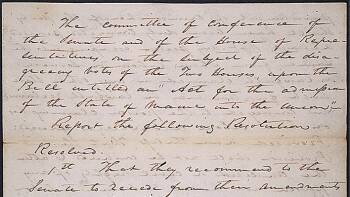 The committee of conference of
the Senate and of the House of Repre
sentatives on the subject of the disa-
greeing votes of the Two Houses, upon the
Bill entitled an "Act for the admission
of the State of Maine into the Union"
Report the following Resolution
Resolved.
1st That they recommend to the
Senate to recede from their amendments